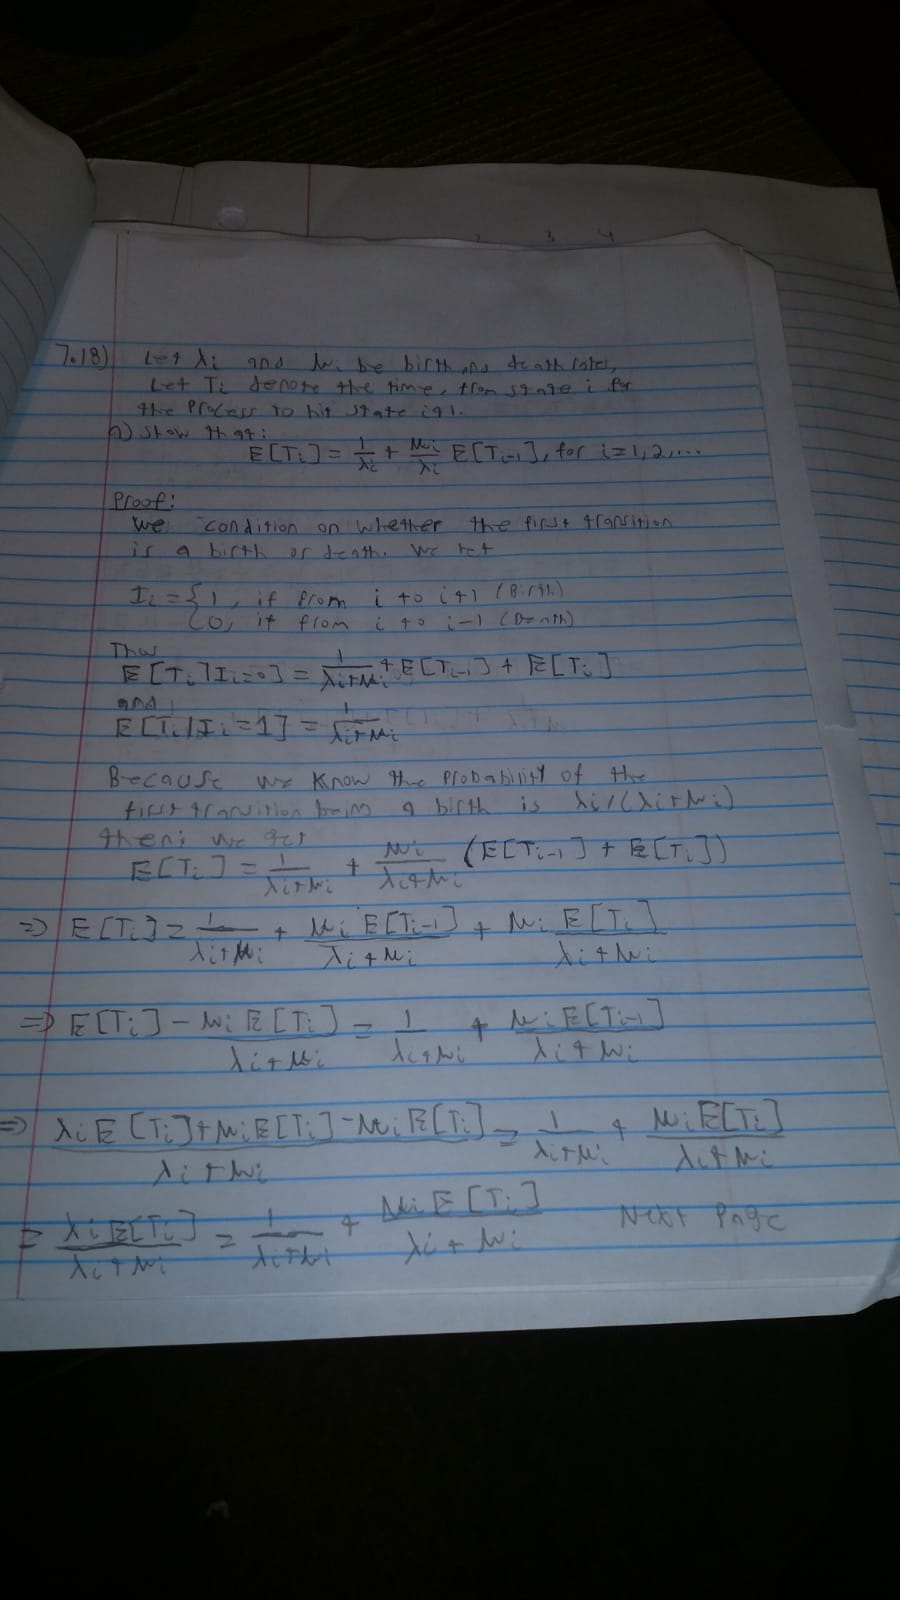 3 4
7.18) Let λi and μi be birth and death rates,
Let Ti denote the time, from state i for
the process to hit state i+1.
a) Show that:
E[Ti] = 1/λi + μi/λi E[Ti-1], for i=1,2,...
Proof:
We condition on whether the first transition
is a birth or death. We let
Ii = { 1, if from i to i+1 (Birth)
0, if from i to i-1 (Death)
Thus
E[Ti|Ii=0] = 1/(λi+μi) + E[Ti-1] + E[Ti]
and
E[Ti|Ii=1] = 1/(λi+μi)
Because we know the probability of the
first transition being a birth is λi/(λi+μi)
then; we get
E[Ti] = 1/(λi+μi) + μi/(λi+μi) (E[Ti-1] + E[Ti])
=> E[Ti] = 1/(λi+μi) + μi E[Ti-1]/(λi+μi) + μi E[Ti]/(λi+μi)
=> E[Ti] - μi E[Ti]/(λi+μi) = 1/(λi+μi) + μi E[Ti-1]/(λi+μi)
=> (λi E[Ti] + μi E[Ti] - μi E[Ti])/(λi+μi) = 1/(λi+μi) + μi E[Ti]/(λi+μi)
= λi E[Ti]/(λi+μi) = 1/(λi+μi) + μi E[Ti]/(λi+μi) Next Page